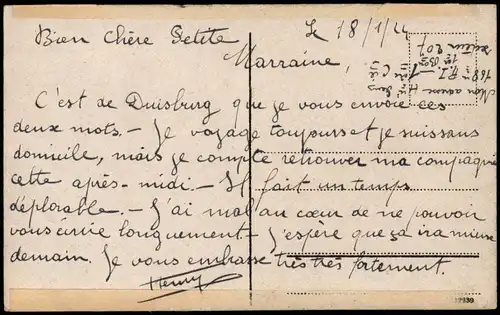 Le 18/1/24
Bien Chère Petite
Marraine,
C'est de Duisburg que je vous envoie ces
deux mots. - Je voyage toujours et je suis sans
domicile, mais je compte retrouver ma compagnie
cette après-midi. - Il fait un temps
déplorable. - J'ai mal au cœur de ne pouvoir
vous écrire longuement. - J'espère que ça ira mieux
demain. Je vous embrasse très très fortement.
Henry
Mon adresse
168e R.I.
secteur 207